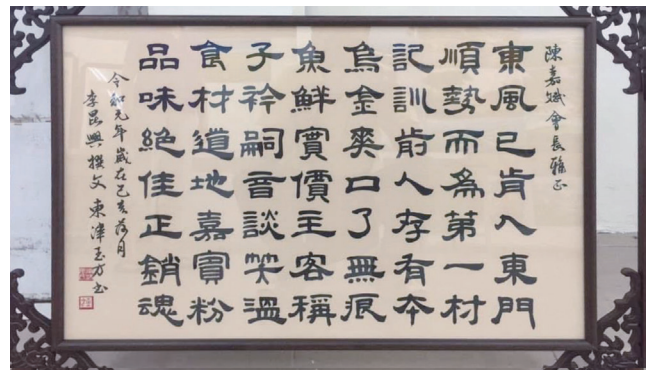 陳嘉斌會長雅正
東風已肯入東門
順勢而為第一材
記訓歬人存有本
烏金爽口了無痕
魚鮮實價主客稱
子衿嗣音談笑溫
食材道地嘉賓粉
品味絕佳正銷魂
令和元年歲在己亥月
李昆興撰文 東澤玉方书